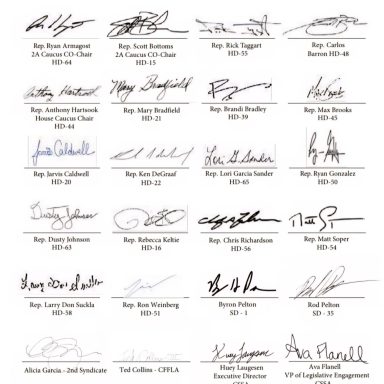 Rep. Ryan Armagost
2A Caucus CO-Chair
HD-64
Rep. Scott Bottoms
2A Caucus CO-Chair
HD-15
Rep. Rick Taggart
HD-55
Rep. Carlos
Barron HD-48
Anthony Hartsook
Rep. Anthony Hartsook
House Caucus Chair
HD-44
Mary Bradfield
Rep. Mary Bradfield
HD-21
Rep. Brandi Bradley
HD-39
Rep. Max Brooks
HD-45
Jarvis Caldwell
Rep. Jarvis Caldwell
HD-20
Rep. Ken DeGraaf
HD-22
Lori G Sander
Rep. Lori Garcia Sander
HD-65
Rep. Ryan Gonzalez
HD-50
Dusty Johnson
Rep. Dusty Johnson
HD-63
Rep. Rebecca Keltie
HD-16
Rep. Chris Richardson
HD-56
Rep. Matt Soper
HD-54
Larry Don Suckla
Rep. Larry Don Suckla
HD-58
Rep. Ron Weinberg
HD-51
Byron Pelton
SD - 1
Rod Pelton
SD - 35
Alicia Garcia - 2nd Syndicate
Ted Collins - CFFLA
Huey Laugesen
Huey Laugesen
Executive Director
CSSA
Ava Flanell
Ava Flanell
VP of Legislative Engagement
CSSA